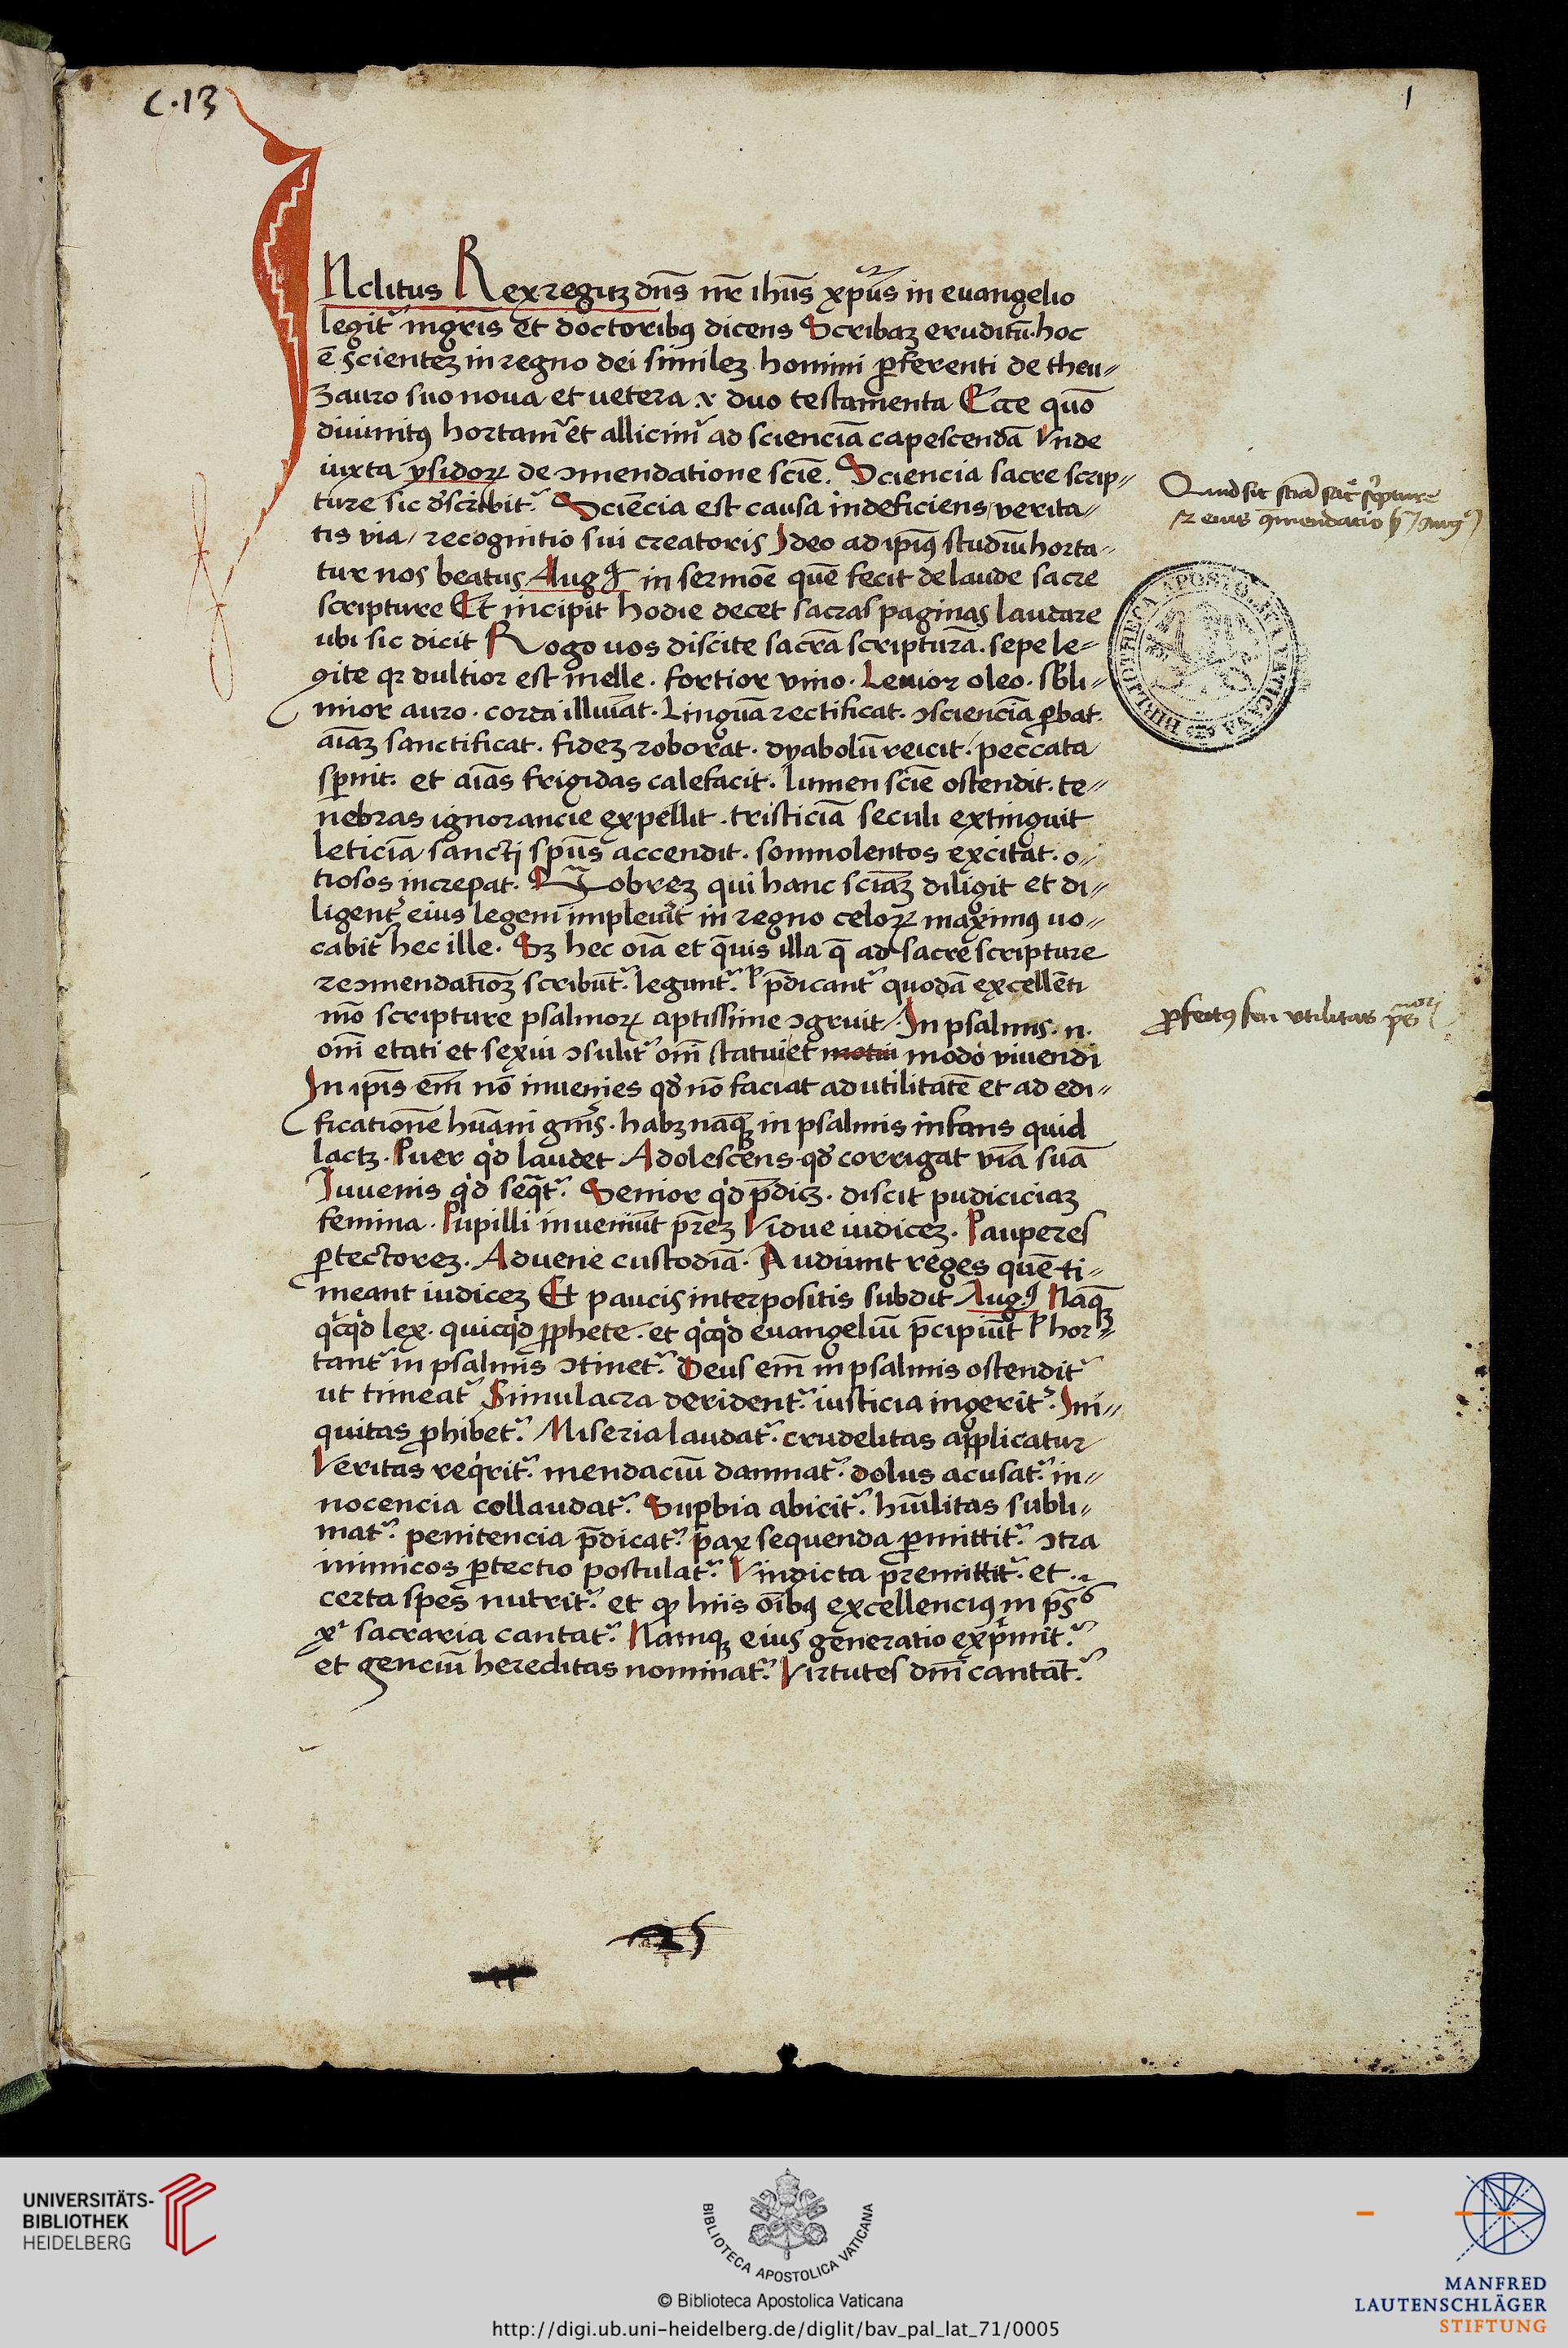 C·13
1
INclitus Rex regū dn̄s nr̄ ih̄us xp̄us in euangelio
legit᷑ mgr̄is et doctoribꝯ dicens Scribaꝫ eruditū·hoc
ē scienteꝫ in regno dei simileꝫ homini ꝓferenti de theu〃
zauro suo noua et uetera .x duo testamenta Ecce quō
diuinitꝯ hortam᷑ et allicim᷑ ad scienciā capescendā Vnde
iuxta ysidoꝝ de ↄmendatione scīe. Sciencia sacre scrip〃
ture sic dscribit᷑. Sciēcia est causa indeficiens / verita〃
tis via / recognitio sui creatoris Ideo ad ip̄iꝯ studiū horta〃
tur nos beatus Augꝯ in sermōe quē fecit de laude sacre
scripture Et incipit hodie decet sacras paginas laudare
ubi sic dicit Rogo uos discite sacrā scripturā. sepe le〃
gite qꝛ dultior est melle. fortior vino. Leuior oleo. sbli〃
mior auro. corda illuīat. Linguā rectificat. ↄsciencia ꝓbat.
aīaꝫ sanctificat. fideꝫ roborat. dyabolū reicit. peccata
sꝑnit. et aīas frigidas calefacit. lumen scīe ostendit. te〃
nebras ignorancie expellit. tristiciā seculi extinguit
leticiā sancti spūs accendit. somnolentos excitat. o〃
tiosos increpat. Quobreꝫ qui hanc sciāꝫ diligit et di〃
ligent᷑ eius legem impleuit in regno celoꝝ maximꝯ uo〃
cabit᷑ hec ille. Sꝫ hec oīa et q̄uis illa q̄ ad sacre scripture
reↄmendatiōꝫ scribūt᷑. legunt᷑. l p̄dicant᷑ quodā excellēti
mō scripture psalmoꝝ aptissime ↄgruit. In psalmis .n.
om̄i etati et sexui ↄsulit᷑ om̄i statui et motui modo viuendi
In ip̄is em̄ nō inuenies qd̄ nō faciat ad utilitatē et ad edi〃
ficationē hūani gn̄is. habꝫ naqꝫ in psalmis infans quid
lactꝫ. Puer qd̄ laudet. Adolescēns qd̄ corrigat viā suā
Iuuenis qd̄ seq̄t᷑. Senior qd̄ p̄dicꝫ. discit pudiciciaꝫ
femina. Pupilli inueniūt pr̄eꝫ Vidue iudiceꝫ. Pauperes
ꝓtectoreꝫ. Aduene custodiā. Audiunt reges quē ti〃
meant iudiceꝫ Et paucis interpositis subdit Augꝯ Naqꝫ
qcqd lex. quicqd ꝓphete. et qcqd euangeliū p̄cipiūt l hor〃
tant᷑ in psalmis ↄtinet᷑. Deus em̄ in psalmis ostendit᷑
ut timeat᷑ Simulacra derident᷑. iusticia ingerit᷑. Ini〃
quitas ꝓhibet᷑. Miseria laudat᷑. crudelitas applicatur
Veritas reqrit᷑. mendaciū damnat᷑. dolus acusat᷑. in〃
nocencia collaudat᷑. Suꝑbia abicit᷑. hūilitas subli〃
mat᷑. penitencia p̄dicat᷑. pax sequenda ꝑmittit᷑. ↄtra
inimicos ꝓtectio postulat᷑. Vindicta premittit᷑. et
certa spes nutrit᷑. et qꝫ hiis oībꝯ excellenciꝯ in ps̄
xi sacraria cantat᷑. Namqꝫ eius generatio exp̄mit᷑.
et genciū hereditas nominat᷑. Virtutes dnī cantāt᷑.
Quid sit sciā sacr̄ scpture
⁊ eius ꝯmendatio
ꝓfectꝯ seu utilitas ps̄moꝝ
BIBLIOTHECA APOSTOLICA VATICANA
UNIVERSITÄTS-
BIBLIOTHEK
HEIDELBERG
BIBLIOTECA APOSTOLICA VATICANA
© Biblioteca Apostolica Vaticana
http://digi.ub.uni-heidelberg.de/diglit/bav_pal_lat_71/0005
MANFRED
LAUTENSCHLÄGER
STIFTUNG